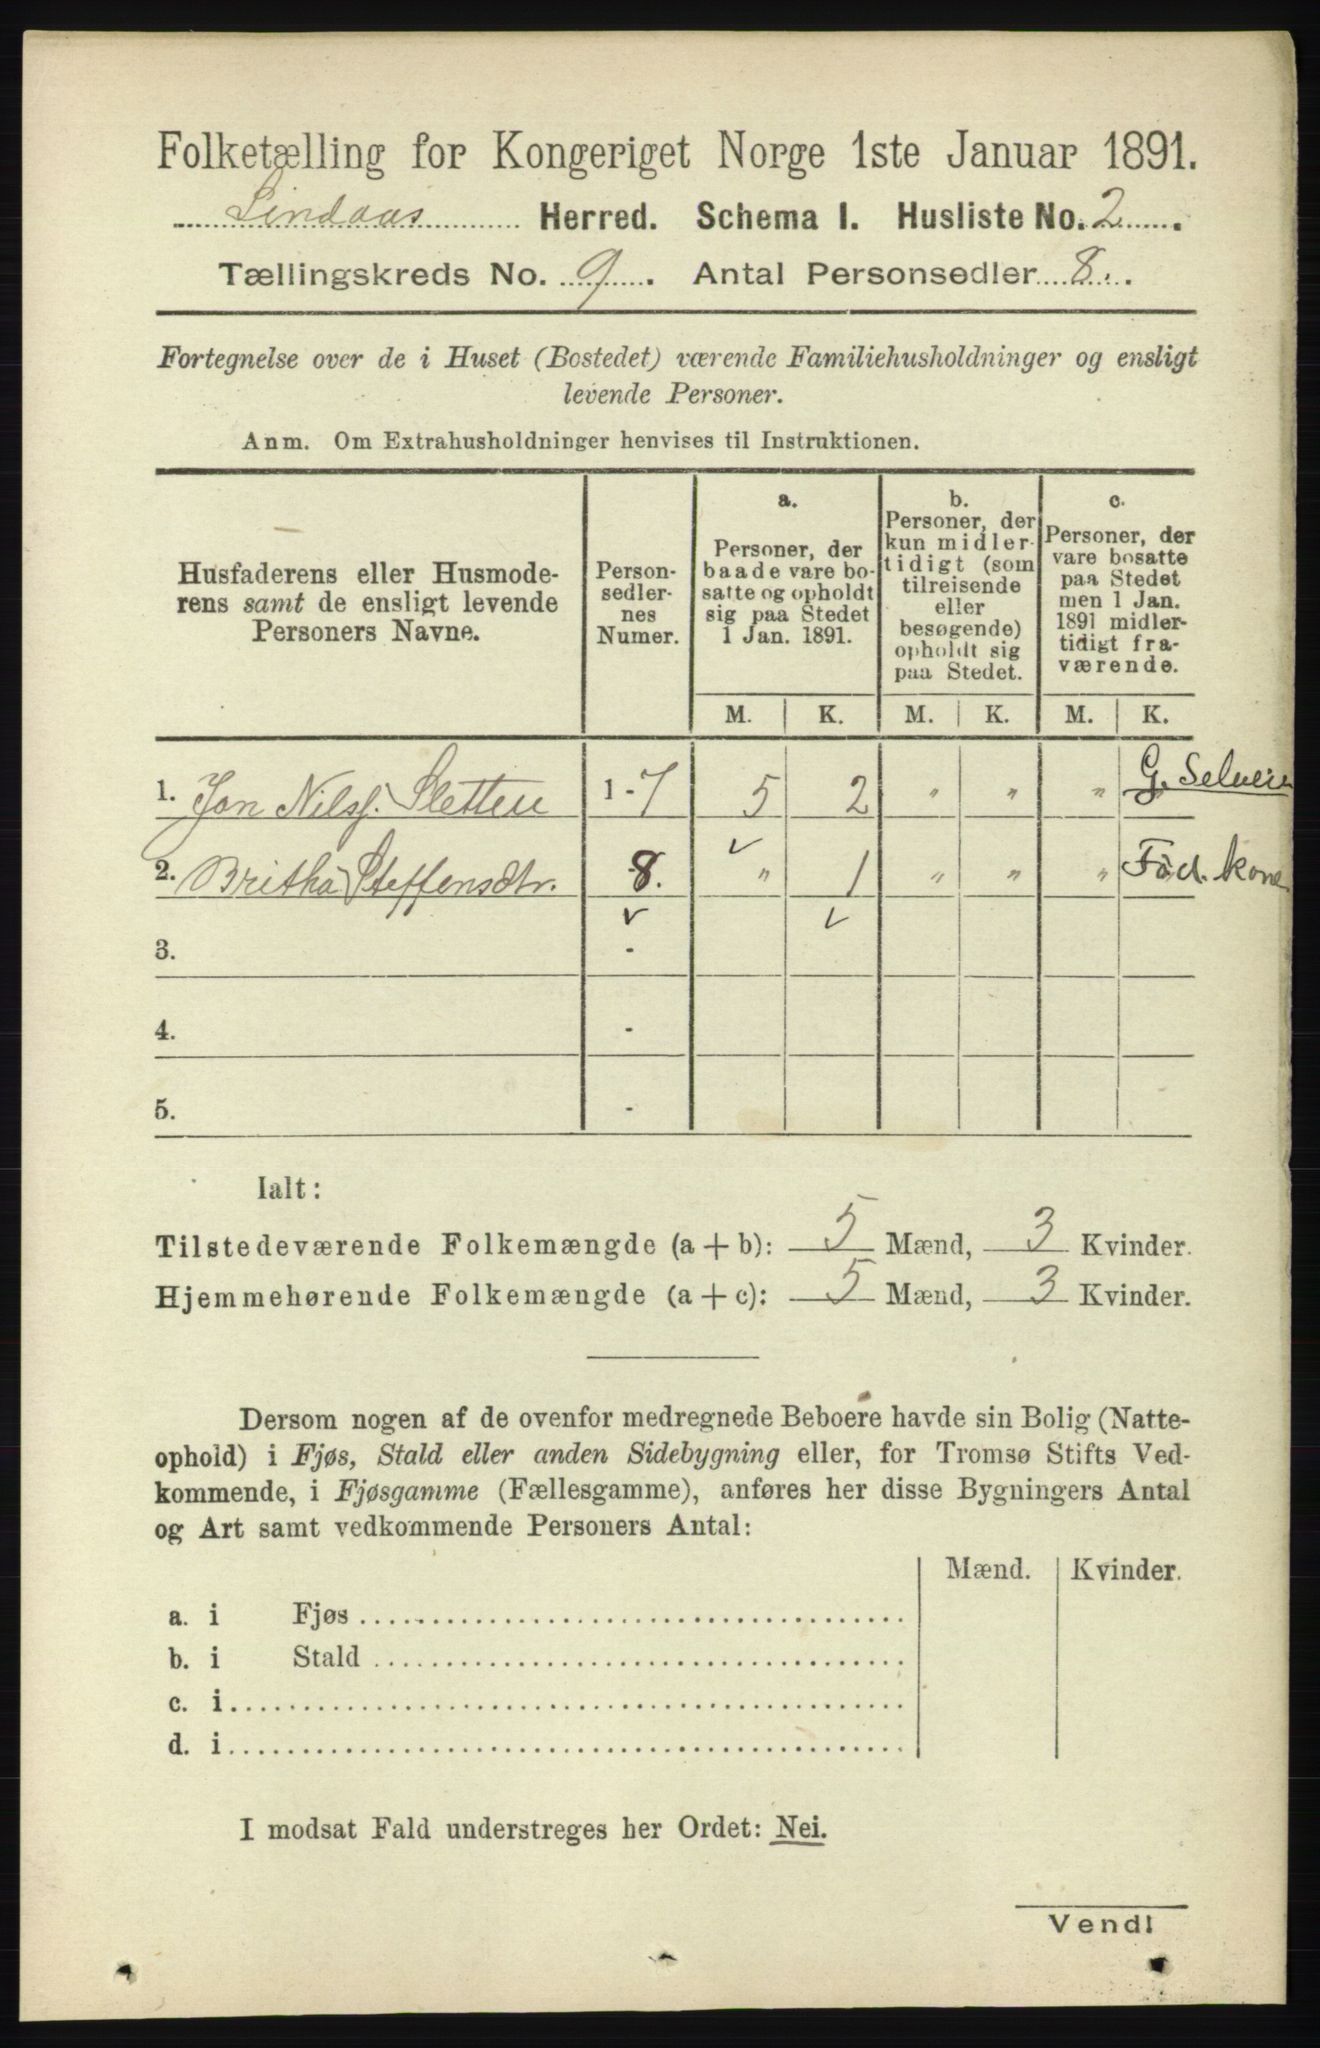 Folketælling for Kongeriget Norge 1ste Januar 1891.
Lindaas Herred. Schema I. Husliste No. 2.
Tællingskreds No. 9. Antal Personsedler 8.
Fortegnelse over de i Huset (Bostedet) værende Familiehusholdninger og ensligt
levende Personer.
Anm. Om Extrahusholdninger henvises til Instruktionen.
Husfaderens eller Husmode-
rens samt de ensligt levende
Personers Navne.
Person-
sedler-
nes
Numer.
a.
Personer, der
baade vare bo-
satte og opholdt
sig paa Stedet
1 Jan. 1891.
b.
Personer, der
kun midler-
tidigt (som
tilreisende
eller
besøgende)
opholdt sig
paa Stedet.
c.
Personer, der
vare bosatte
paa Stedet
men 1 Jan.
1891 midler-
tidigt fra-
værende.
M. K. M. K. M. K.
1. Jon Nilsf. Sletten 1-7 5 2 " " " G. Selveier
2. Britha Steffensdtr. 8. " 1 " " " Fød. kone
3. -
4. -
5. -
Ialt:
Tilstedeværende Folkemængde (a + b): 5 Mænd, 3 Kvinder.
Hjemmehørende Folkemængde (a + c): 5 Mænd, 3 Kvinder.
Dersom nogen af de ovenfor medregnede Beboere havde sin Bolig (Natte-
ophold) i Fjøs, Stald eller anden Sidebygning eller, for Tromsø Stifts Ved-
kommende, i Fjøsgamme (Fællesgamme), anføres her disse Bygningers Antal
og Art samt vedkommende Personers Antal:
Mænd. Kvinder.
a. i Fjøs
b. i Stald
c. i
d. i
I modsat Fald understreges her Ordet: Nei.
Vend!